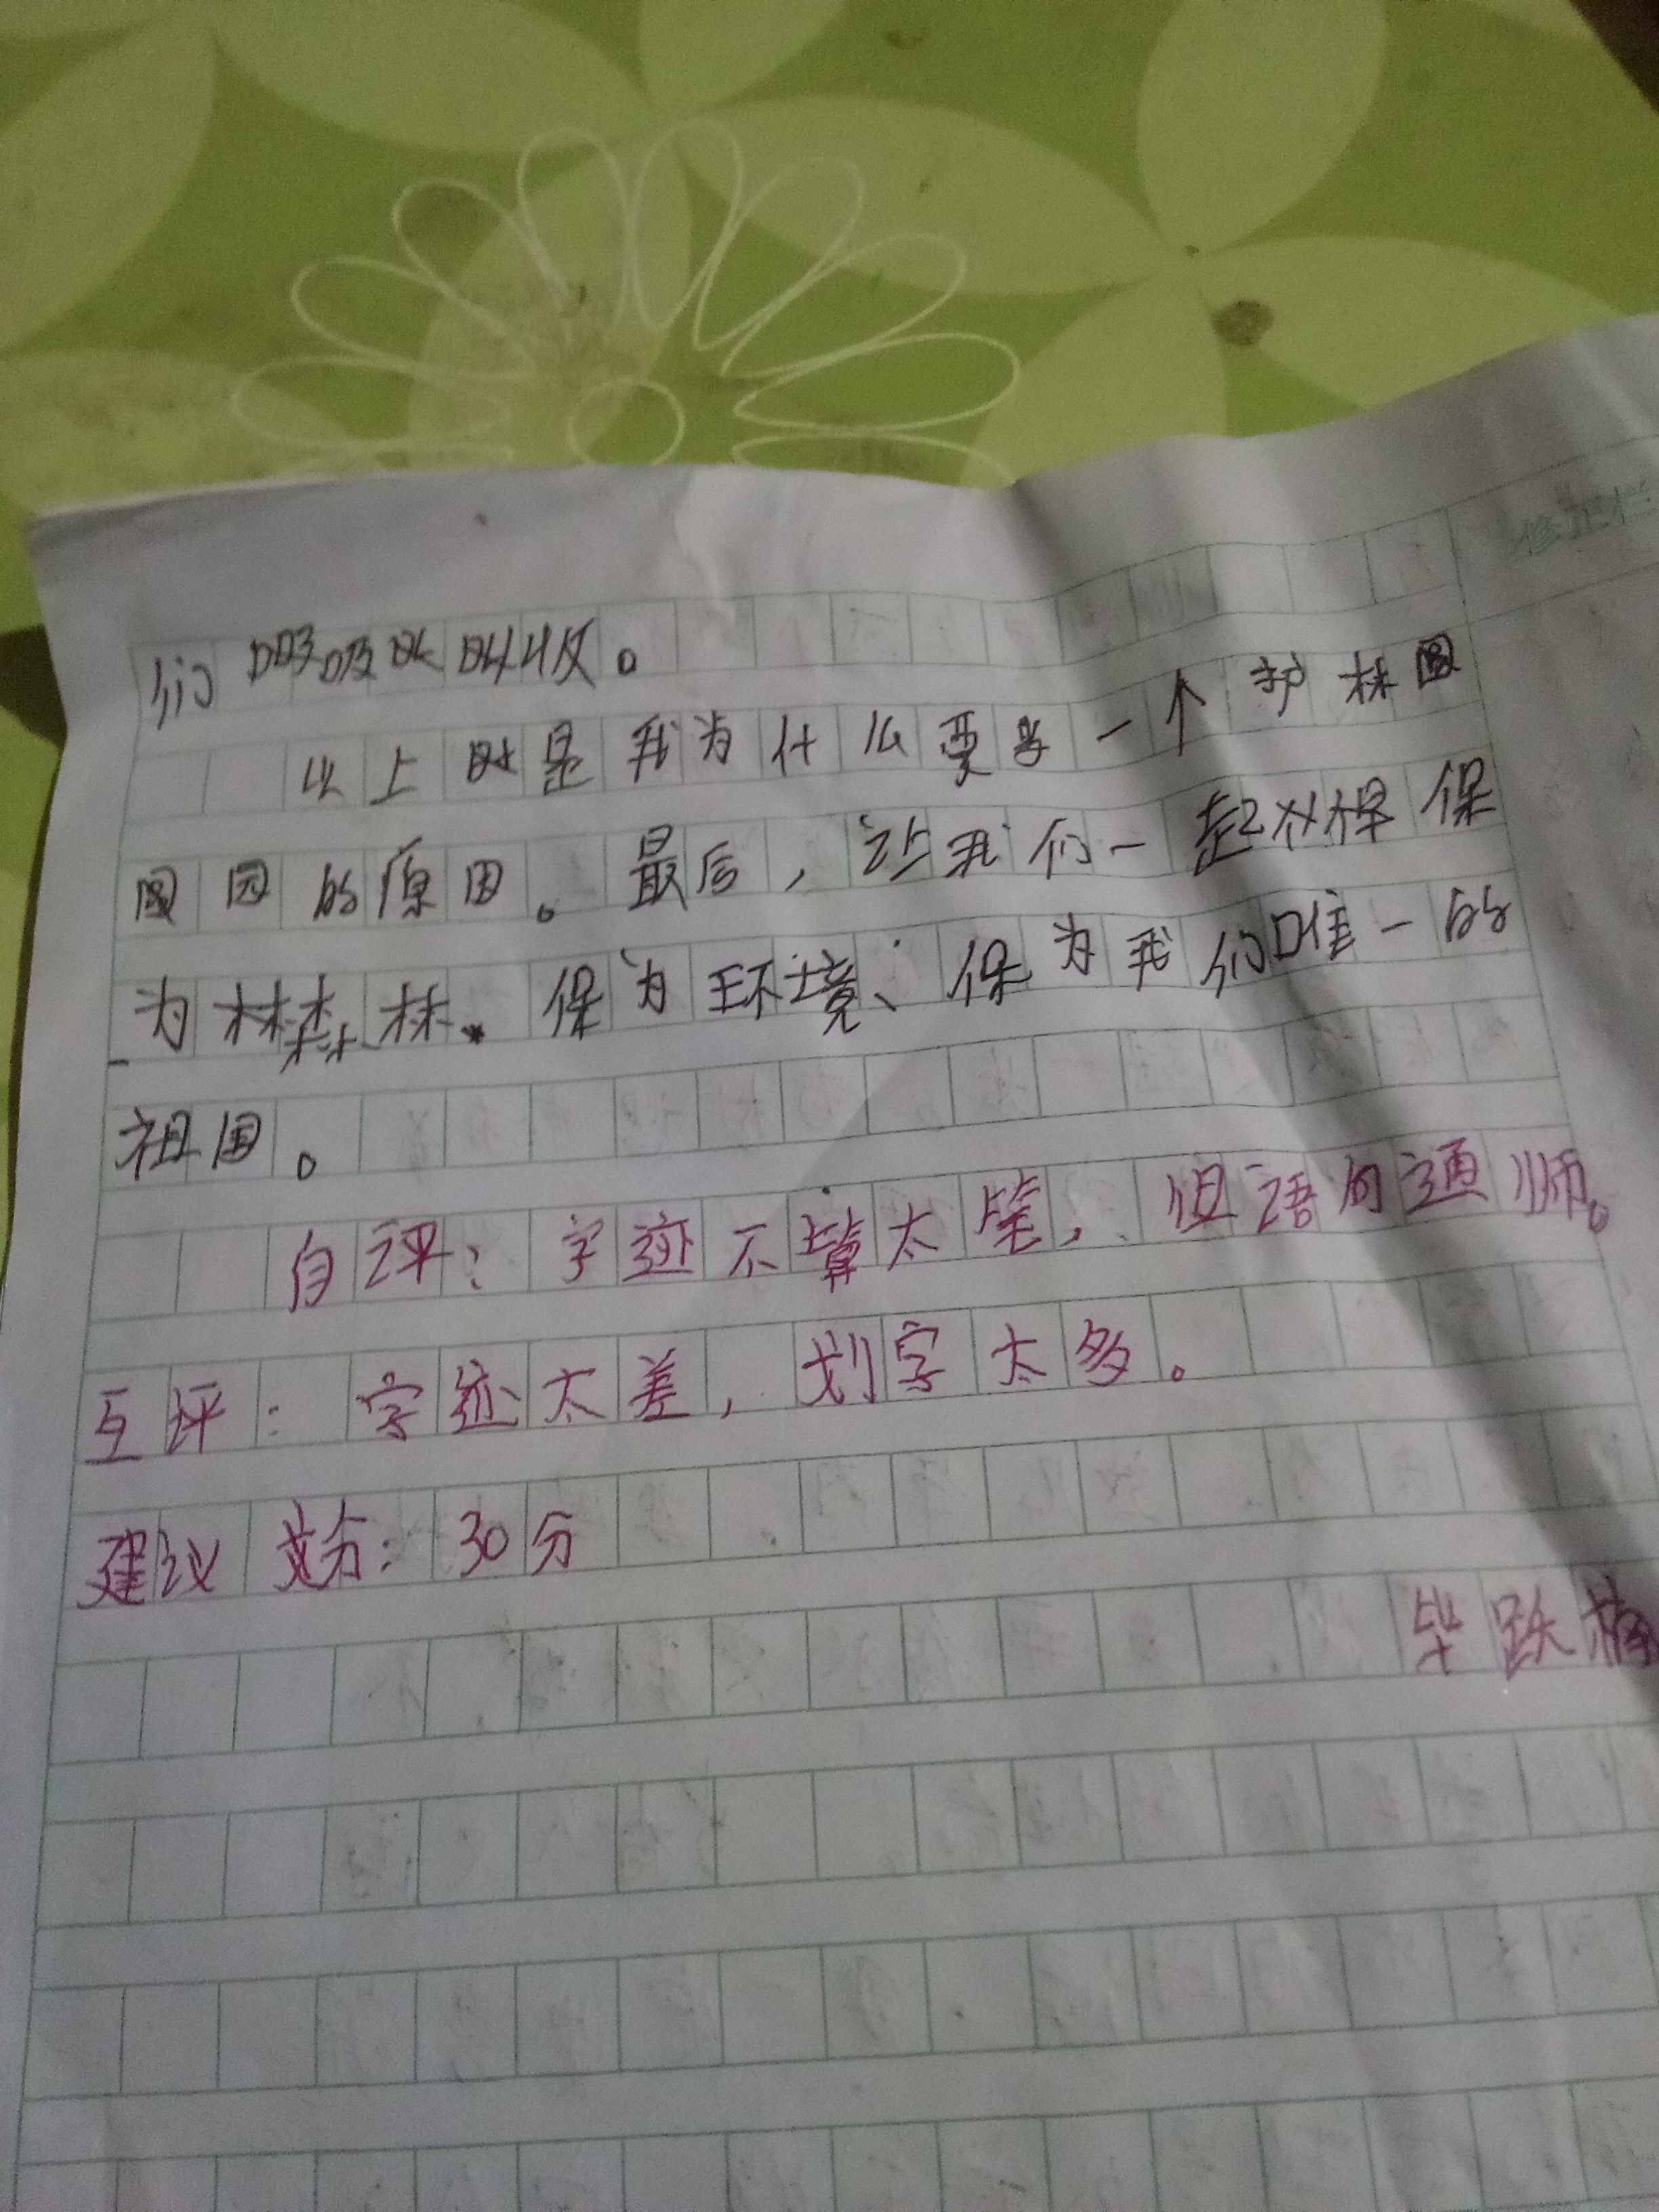 修正栏
们呼吸
以上 是我为什么要当一个护林
园的原因。最后,让我们一起 保
为森林.保为环境、保为我们唯一的
祖国。
自评:字迹不算太 ,但语句通顺。
互评:字迹太差,划字太多。
建议 分:30分
毕跃